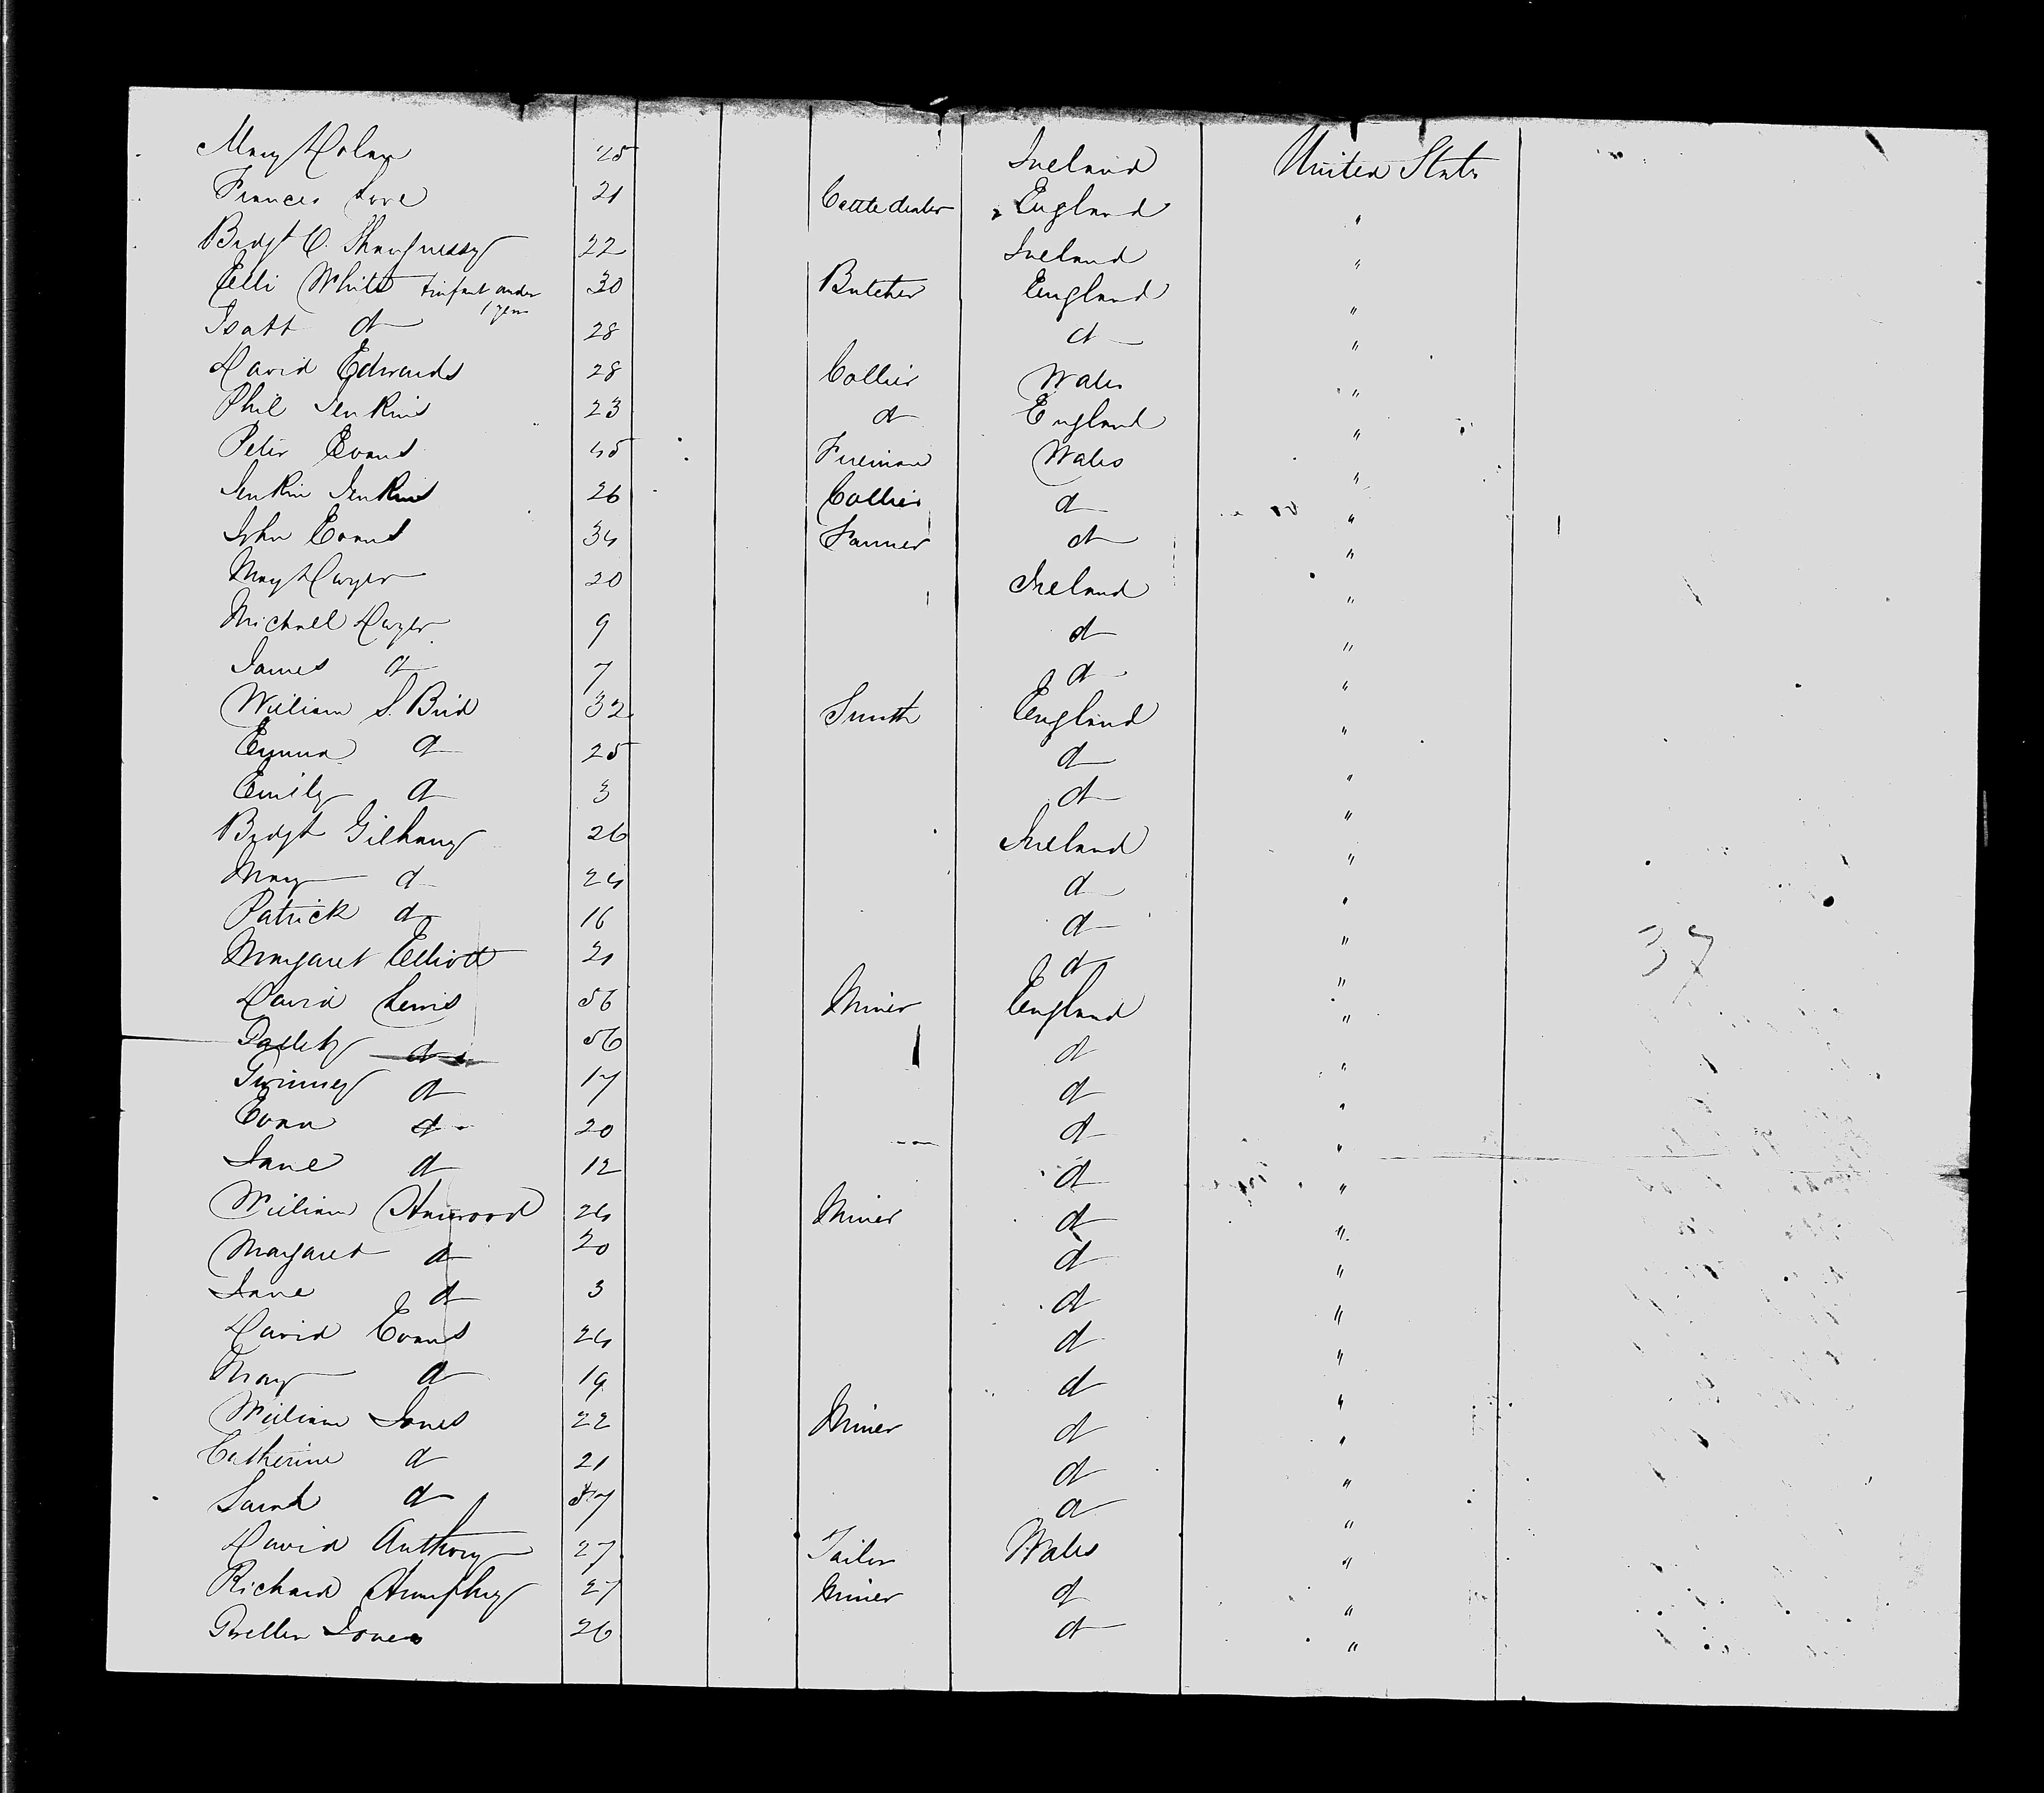 Mary Dolan 25 Ireland United States
Frances Love 21 Cattle dealer England "
Bridgt O. Shaughnessy 22 Ireland "
Elli White + infant under 1 year 30 Butcher England "
Isatt do 28 do "
David Edwards 28 Collier Wales "
Phil Jenkins 23 do England "
Peter Evans 45 Fireman Wales "
Jenkin Jenkins 26 Collier do "
John Evans 34 Farmer do "
Mary Dwyer 20 Ireland "
Michael Dwyer 9 do "
James do 7 do "
William S. Bird 32 Smith England "
Emma do 25 do "
Emily do 3 do "
Bridgt Gilhany 26 Ireland "
Mary do 24 do "
Patrick do 16 do "
Margaret Elliott 21 do "
David Lewis 56 Miner England "
do 56 do "
do 17 do "
Evan do 20 do "
Jane do 12 do "
William 24 Miner do "
Margaret do 20 do "
Jane do 3 do "
David Evans 24 do "
Mary do 19 do "
William Jones 22 Miner do "
Catherine do 21 do "
Sarah do 57 do "
David Anthony 27 Tailor Wales "
Richard Humphrey 27 Miner do "
Jones 26 do "
37